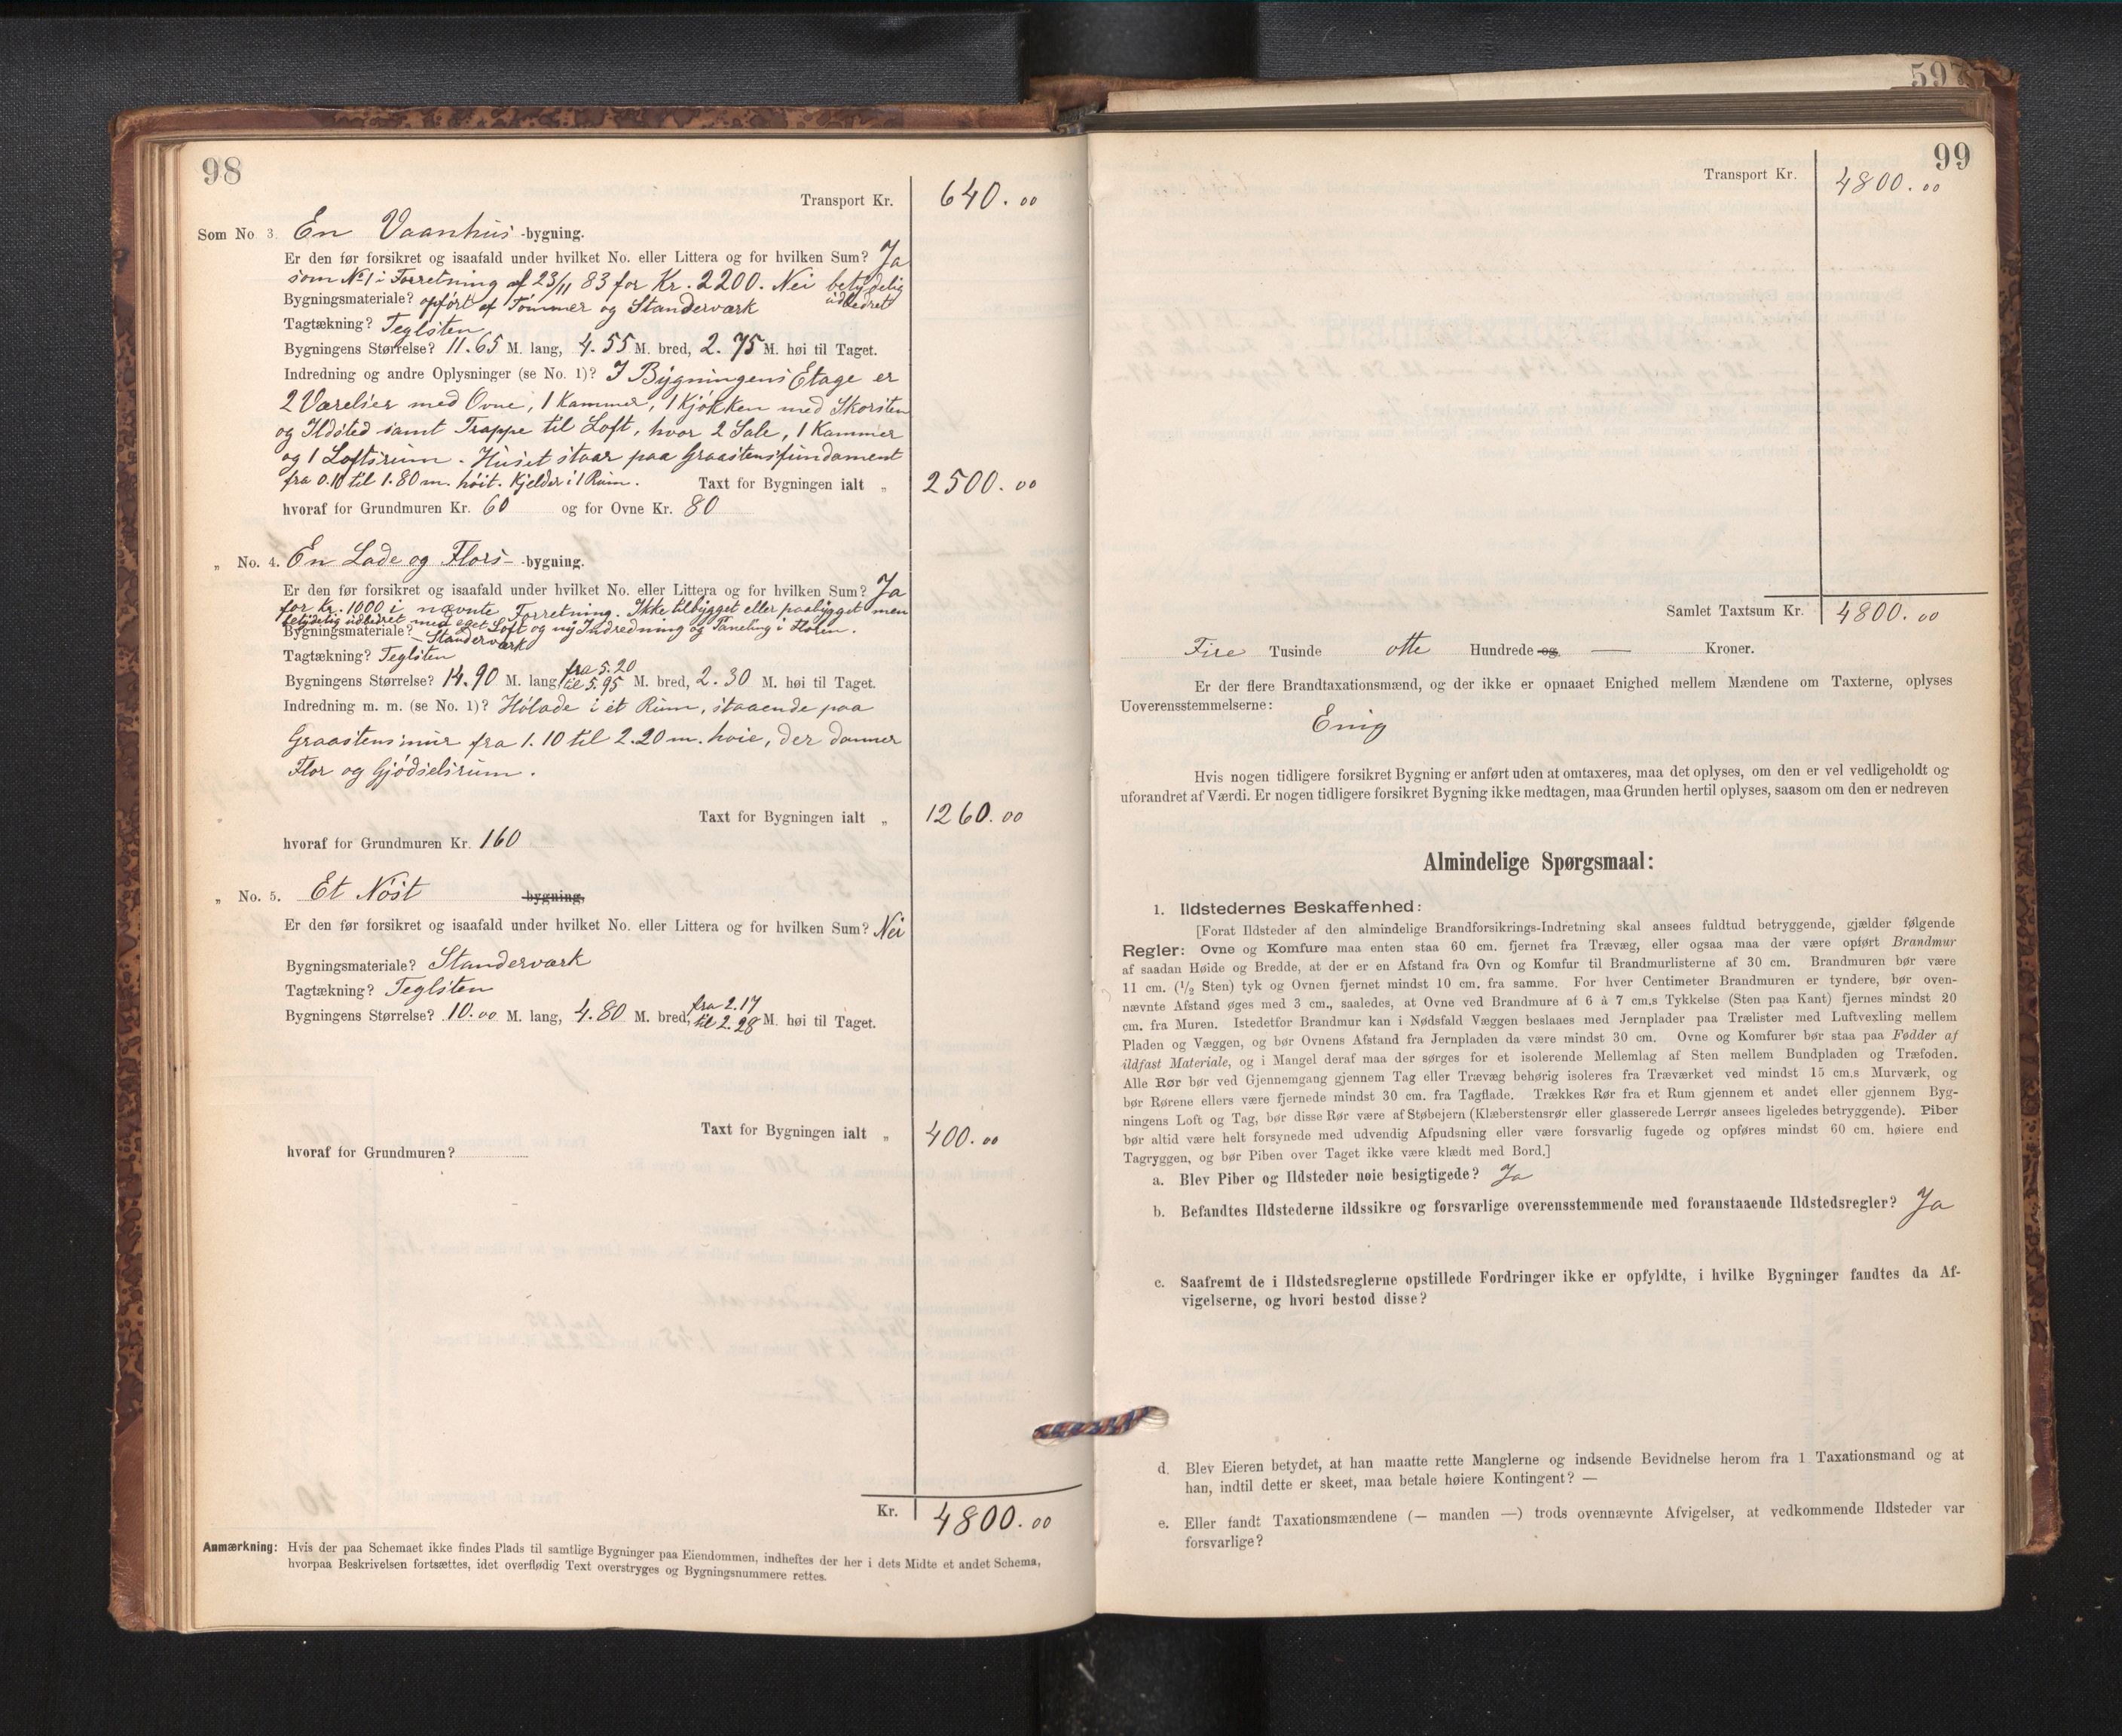 98
Transport Kr. 640.00
Som No 3. En Vaanhus -bygning.
Er den før forsikret og isaafald under hvilket No. eller Littera og for hvilken Sum? Ja
som No 1 i Forretning af 23/11 83 for Kr. 2200. Nei betydelig
udbedret
Bygningsmateriale? opført af Tømmer og Standerværk
Tagtækning? Teglsten
Bygningens Størrelse? 11.65 M. lang, 4.55 M. bred, 2.75 M. høi til Taget.
Indredning og andre Oplysninger (se No. 1)? I Bygningens Etage er
2 Værelser med Ovne, 1 Kammer, 1 Kjøkken med Skorsten
og Ildsted samt Trappe til Loft, hvor 2 Sale, 1 Kammer
og 1 Loftsrum. Huset staar paa Graastensfundament
fra 0.10 til 1.80 m. høit. Kjelder i 1 Rum. Taxt for Bygningen ialt „ 2500.00
hvoraf for Grundmuren Kr. 60 og for Ovne Kr. 80
„ No. 4. En Lade og Flors- -bygning.
Er den før forsikret og isaafald under hvilket No. eller Littera og for hvilken Sum? Ja
for Kr. 1000 i nævnte Forretning. Ikke tilbygget eller paabygget men
betydelig udbedret med eget Loft og ny Indredning og Paneling i Floren.
Bygningsmateriale? – Standerværk
Tagtækning? Teglsten
Bygningens Størrelse? 14.90 M. lang, fra 5.20 til 5.95 M. bred, 2.30 M. høi til Taget.
Indredning m. m. (se No. 1)? Hølade i et Rum, staaende paa
Graastensmur fra 1.10 til 2.20 m. høie, der danner
Flor og Gjødselsrum.
Taxt for Bygningen ialt „ 1260.00
hvoraf for Grundmuren Kr. 160
„ No. 5. Et Nøst bygning.
Er den før forsikret og isaafald under hvilket No. eller Littera og for hvilken Sum? Nei
Bygningsmateriale? Standerværk
Tagtækning? Teglsten
Bygningens Størrelse? 10.00 M. lang, 4.80 M. bred, fra 2.17 til 2.28 M. høi til Taget.
Taxt for Bygningen ialt „ 400.00
hvoraf for Grundmuren?
Kr. 4800.00
Anmærkning: Hvis der paa Schemaet ikke findes Plads til samtlige Bygninger paa Eiendommen, indheftes der her i dets Midte et andet Schema,
hvorpaa Beskrivelsen fortsættes, idet overflødig Text overstryges og Bygningsnummere rettes.
597
99
Transport Kr. 4800.00
Samlet Taxtsum Kr. 4800.00
Fire Tusinde otte Hundrede og — Kroner.
Er der flere Brandtaxationsmænd, og der ikke er opnaaet Enighed mellem Mændene om Taxterne, oplyses
Uoverensstemmelserne:
Enig
Hvis nogen tidligere forsikret Bygning er anført uden at omtaxeres, maa det oplyses, om den er vel vedligeholdt og
uforandret af Værdi. Er nogen tidligere forsikret Bygning ikke medtagen, maa Grunden hertil oplyses, saasom om den er nedreven
Almindelige Spørgsmaal:
1. Ildstedernes Beskaffenhed:
[Forat Ildsteder af den almindelige Brandforsikrings-Indretning skal ansees fuldtud betryggende, gjælder følgende
Regler: Ovne og Komfure maa enten staa 60 cm. fjernet fra Trævæg, eller ogsaa maa der være opført Brandmur
af saadan Høide og Bredde, at der er en Afstand fra Ovn og Komfur til Brandmurlisterne af 30 cm. Brandmuren bør være
11 cm. (1/2 Sten) tyk og Ovnen fjernet mindst 10 cm. fra samme. For hver Centimeter Brandmuren er tyndere, bør oven-
nævnte Afstand øges med 3 cm., saaledes, at Ovne ved Brandmure af 6 à 7 cm.s Tykkelse (Sten paa Kant) fjernes mindst 20
cm. fra Muren. Istedetfor Brandmur kan i Nødsfald Væggen beslaaes med Jernplader paa Trælister med Luftvexling mellem
Pladen og Væggen, og bør Ovnens Afstand fra Jernpladen da være mindst 30 cm. Ovne og Komfurer bør staa paa Fødder af
ildfast Materiale, og i Mangel deraf maa der sørges for et isolerende Mellemlag af Sten mellem Bundpladen og Træfoden.
Alle Rør bør ved Gjennemgang gjennem Tag eller Trævæg behørig isoleres fra Træværket ved mindst 15 cm.s Murværk, og
bør Rørene ellers være fjernede mindst 30 cm. fra Tagflade. Trækkes Rør fra et Rum gjennem et andet eller gjennem Byg-
ningens Loft og Tag, bør disse Rør være af Støbejern (Klæberstensrør eller glasserede Lerrør ansees ligeledes betryggende). Piber
bør altid være helt forsynede med udvendig Afpudsning eller være forsvarlig fugede og opføres mindst 60 cm. høiere end
Tagryggen, og bør Piben over Taget ikke være klædt med Bord.]
a. Blev Piber og Ildsteder nøie besigtigede? Ja
b. Befandtes Ildstederne ildssikre og forsvarlige overensstemmende med foranstaaende Ildstedsregler? Ja
c. Saafremt de i Ildstedsreglerne opstillede Fordringer ikke er opfyldte, i hvilke Bygninger fandtes da Af-
vigelserne, og hvori bestod disse?
d. Blev Eieren betydet, at han maatte rette Manglerne og indsende Bevidnelse herom fra 1 Taxationsmand og at
han, indtil dette er skeet, maa betale høiere Kontingent? —
e. Eller fandt Taxationsmændene (— manden —) trods ovennævnte Afvigelser, at vedkommende Ildsteder var
forsvarlige?